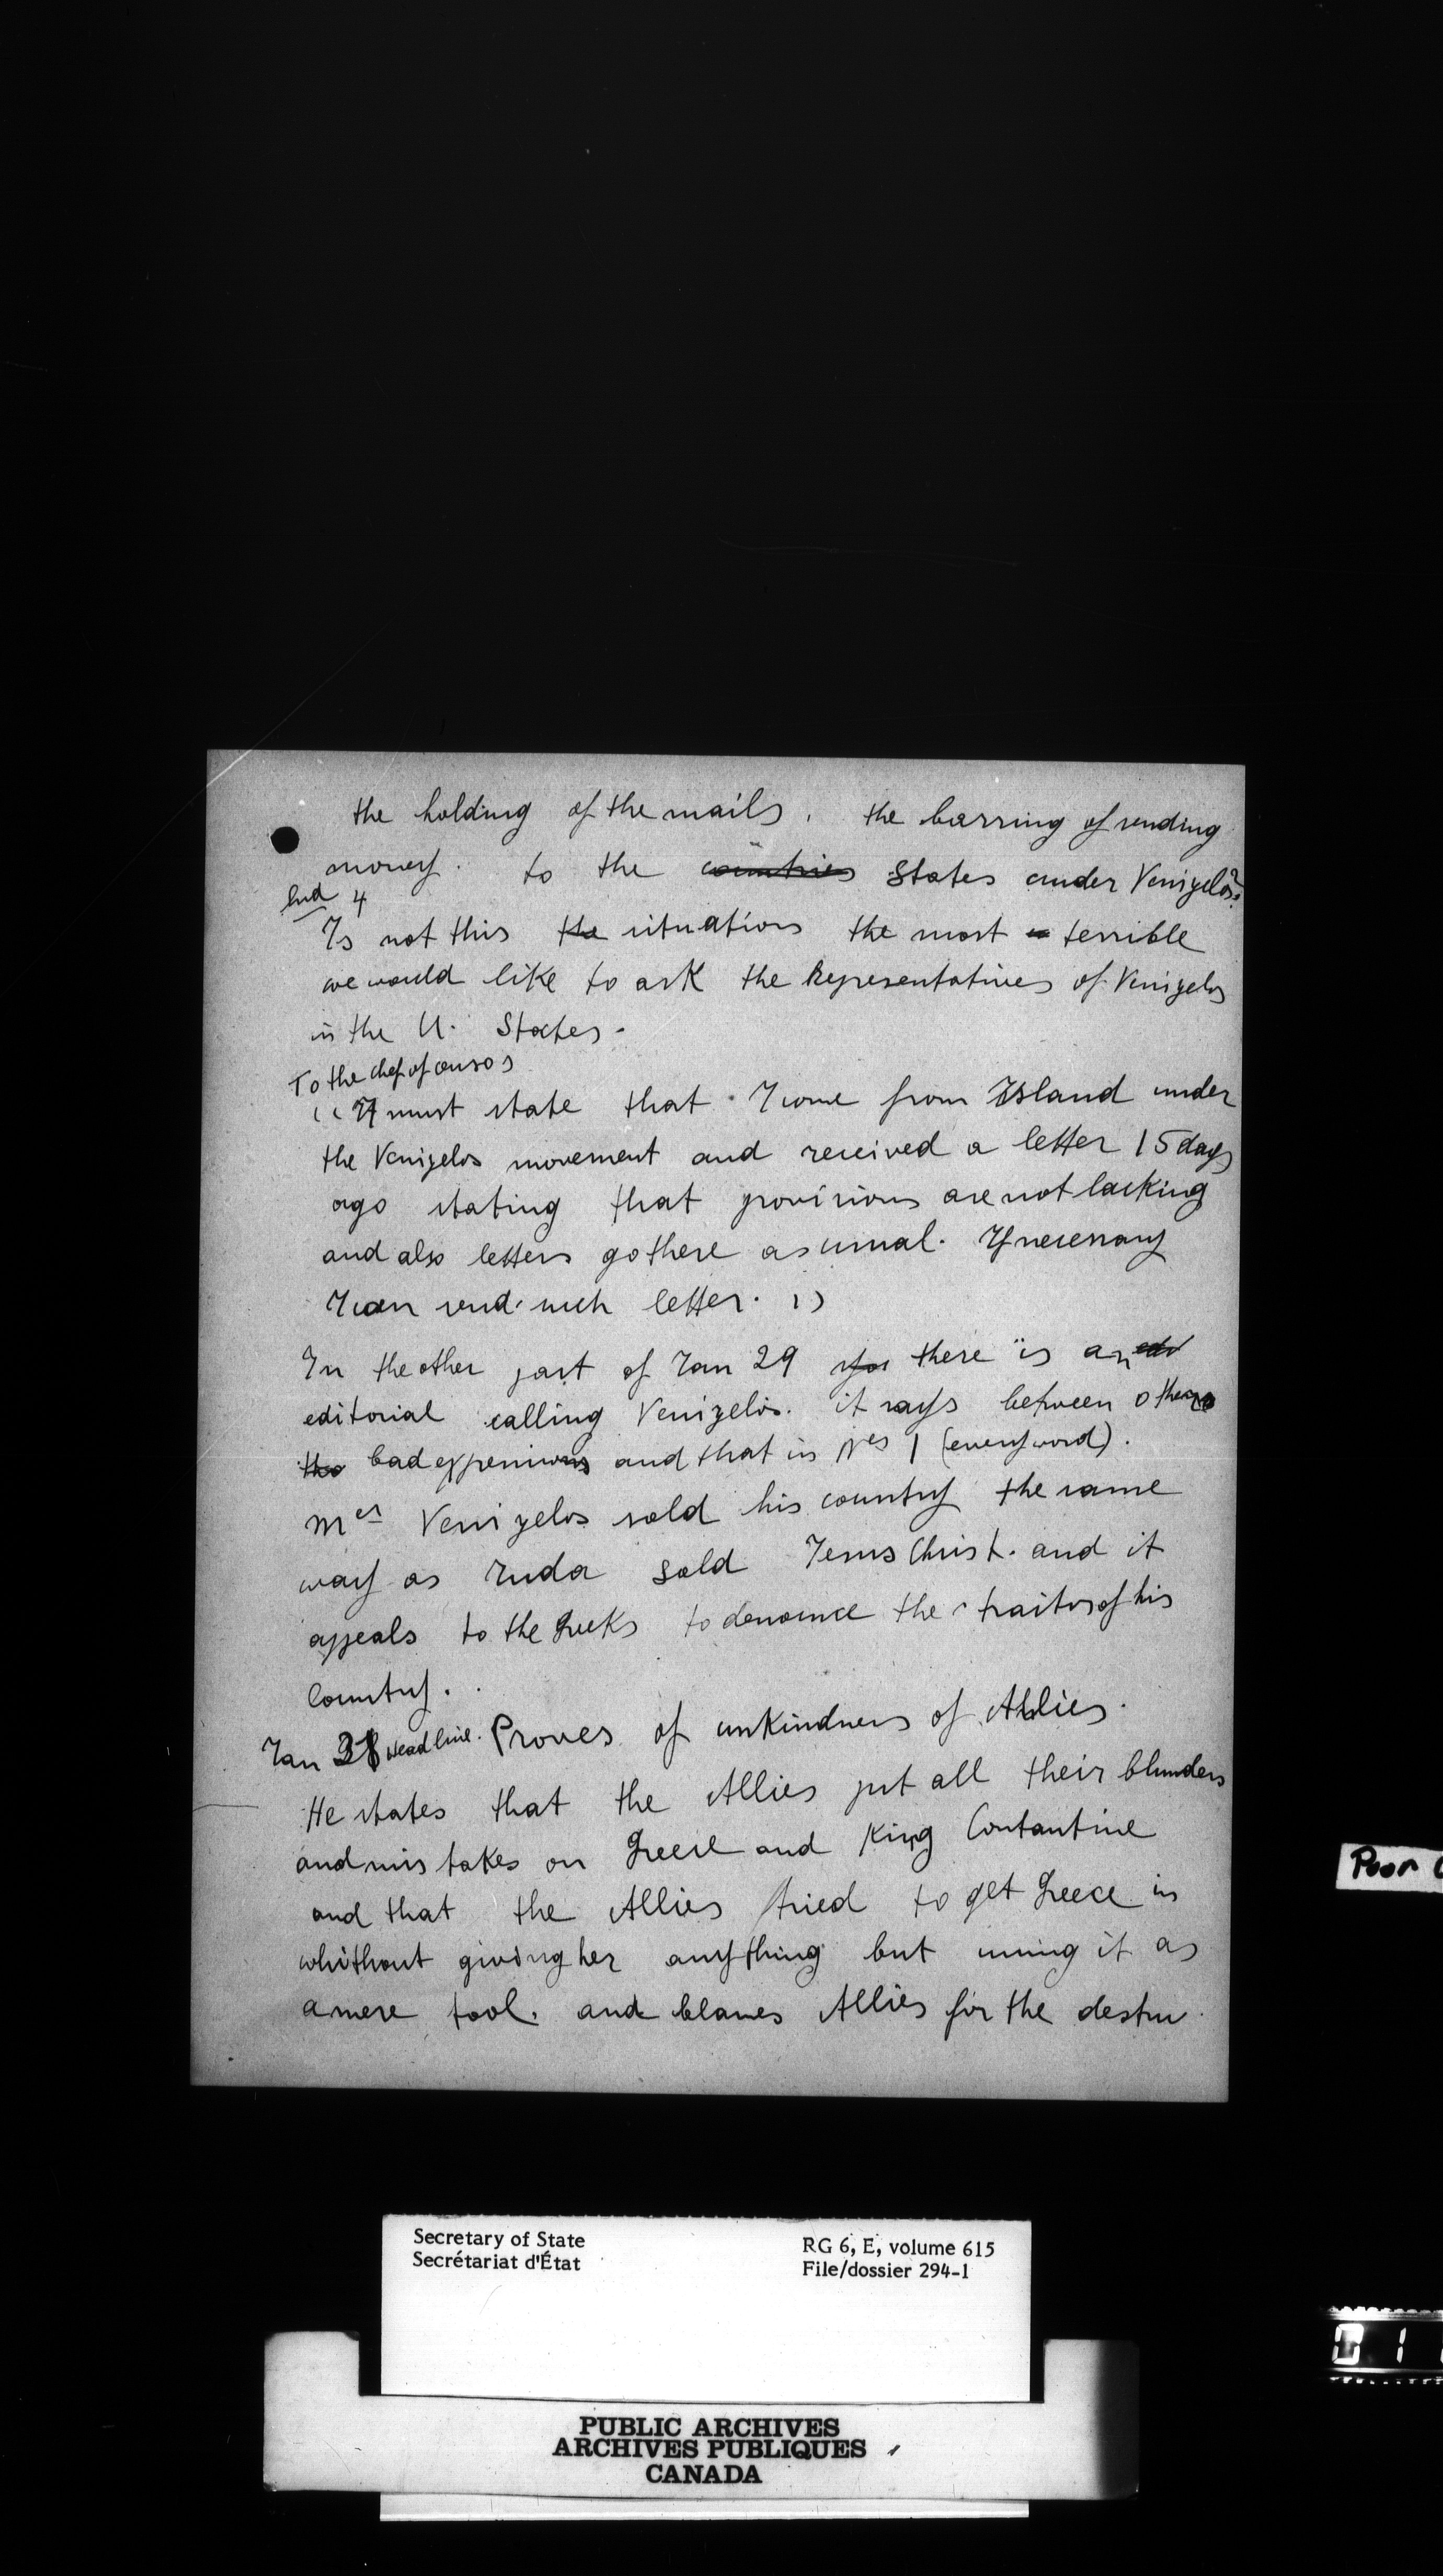 the holding of the mails. the barring of sending
money. to the countries States under Venizelos?
2nd 4
Is not this the situations the most terrible
we would like to ask the Representatives of Venizelos
in the U. States.
To the chef of censos
"I must state that I come from Island under
the Venizelos movement and received a letter 15 days
ago stating that provisions are not lacking
and also letters go there as usual. If necessary
I can send such letter. "
In the other part of Jan 29 there is an
editorial calling Venizelos. it says between others
the bad expressions and that in No 1 (every word).
Mer Venizelos sold his country the same
way as Juda sold Jesus Christ. and it
appeals to the Greeks to denounce the traitos of his
Country.
Jan 31 Headline. Proves of unkindness of Allies.
He states that the Allies put all their blunders
and mistakes on Greece and King Contantine
and that the Allies tried to get Greece in
whithout giving her anything but using it as
a mere tool. and blames Allies for the destru
Poor
Secretary of State
Secrétariat d'État
RG 6, E, volume 615
File/dossier 294-1
PUBLIC ARCHIVES
ARCHIVES PUBLIQUES
CANADA